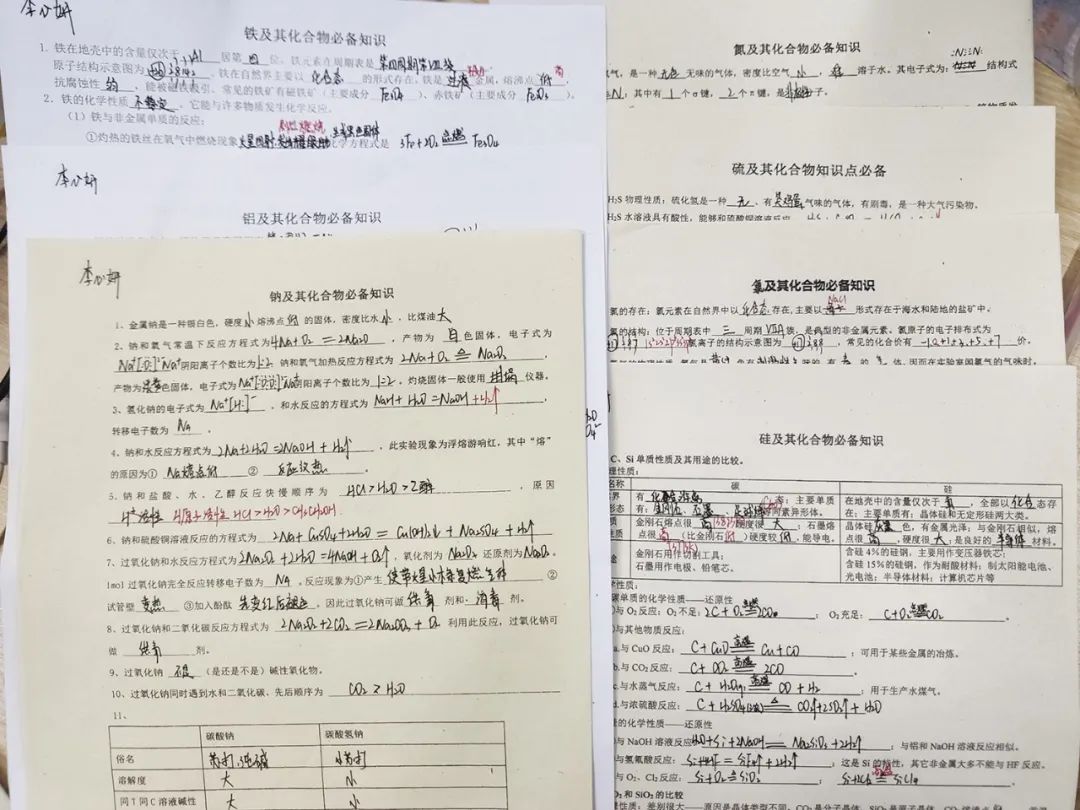 李心妍
铁及其化合物必备知识
1. 铁在地壳中的含量仅次于 Al 居第 四 位，铁元素在周期表是 第四周期第Ⅷ族
原子结构示意图为 铁在自然界主要以 化合态 的形式存在，铁是 过渡 金属，熔沸点
抗腐蚀性 弱，能被磁铁吸引，常见的铁矿有磁铁矿（主要成分 Fe3O4）、赤铁矿（主要成分 Fe2O3）。
2. 铁的化学性质 ，它能与许多物质发生化学反应。
（1）铁与非金属单质的反应：
剧烈燃烧
①灼热的铁丝在氧气中燃烧现象 化学方程式是 3Fe+2O2 点燃 Fe3O4
李心妍
铝及其化合物必备知识
李心妍
钠及其化合物必备知识
1、金属钠是一种银白色，硬度 小 熔沸点 低 的固体，密度比水 小，比煤油 大
2、钠和氧气常温下反应方程式为 4Na+O2=2Na2O，产物为 白 色固体，电子式为
阴阳离子个数比为 1:2 钠和氧气加热反应方程式为 2Na+O2 △ Na2O2，
产物为 色固体，电子式为 阴阳离子个数比为 1:2，灼烧固体一般使用 坩埚 仪器。
3、氢化钠的电子式为 Na+[H:]-，和水反应的方程式为 NaH+H2O=NaOH+H2↑，
转移电子数为 NA。
4、钠和水反应方程式为 2Na+2H2O=2NaOH+H2↑，此实验现象为浮熔游响红，其中“熔”
的原因为① Na熔点低 ② 反应放热。
5、钠和盐酸、水、乙醇反应快慢顺序为 HCl>H2O>乙醇，原因
H原子活性 HCl>H2O>CH3CH2OH
6、钠和硫酸铜溶液反应的方程式为 2Na+CuSO4+2H2O=Cu(OH)2↓+Na2SO4+H2↑
7、过氧化钠和水反应方程式为 2Na2O2+2H2O=4NaOH+O2↑，氧化剂为 Na2O2 还原剂为 Na2O2。
1mol过氧化钠完全反应转移电子数为 NA。反应现象为①产生 使带火星小木条复燃 ②
试管壁 变热 ③加入酚酞 先变红后褪色。因此过氧化钠可做 供氧 剂和 消毒 剂。
8、过氧化钠和二氧化碳反应方程式为 2Na2O2+2CO2=2Na2CO3+O2 利用此反应，过氧化钠可
做 供氧 剂。
9、过氧化钠 不是 （是还是不是）碱性氧化物。
10、过氧化钠同时遇到水和二氧化碳，先后顺序为 CO2>H2O
11、
碳酸钠 碳酸氢钠
俗名 苏打、纯碱 小苏打
溶解度 大 小
同T同C溶液碱性 大 小
氮及其化合物必备知识
气，是一种 无色 无味的气体，密度比空气 小， 溶于水。其电子式为： :N⋮⋮N: 结构式
N；其中有 1 个σ键， 2 个π键，是 分子。
硫及其化合物知识点必备
H2S 物理性质：硫化氢是一种 无、有 臭鸡蛋 气味的气体，有剧毒，是一种大气污染物。
H2S 水溶液具有酸性，能够和硫酸铜溶液反应
氯及其化合物必备知识
氯的存在：氯元素在自然界中以 化合态 存在，主要以 NaCl 形式存在于海水和陆地的盐矿中。
氯的结构：位于周期表中 三 周期 ⅦA 族，是典型的非金属元素。氯原子的电子排布式为
氯离子的结构示意图为 ，常见的化合价有 -1,0,+1,+3,+5,+7 价。
硅及其化合物必备知识
C、Si 单质性质及其用途的比较。
理性质：
名称 碳 硅
有 态；主要单质 在地壳中的含量仅次于 氧，全部以 化合 态存
有：金刚石、石墨、足球烯 等同素异形体。 在；主要单质有：晶体硅和无定形硅两大类。
金刚石熔点很 高 硬度很 大；石墨熔 晶体硅 灰黑 色，有金属光泽；与金刚石相似，熔
点很 高（比金刚石 ）硬度较 低，能导电。 点很 高，硬度很 大，是良好的 半导体 材料。
金刚石用作切割工具； 含硅 4%的硅钢，主要用作变压器铁芯；
石墨用作电极、铅笔芯。 含硅 15%的硅钢，作为耐酸材料；制太阳能电池、
光电池；半导体材料；计算机芯片等
学性质：
碳单质的化学性质——还原性
与 O2 反应；O2不足：2C+O2 点燃 2CO；O2充足：C+O2 点燃 CO2。
与其他物质反应：
a.与 CuO 反应：C+CuO 高温 Cu+CO；可用于某些金属的冶炼。
b.与 CO2 反应：C+CO2 高温 2CO
c.与水蒸气反应：C+H2O(g) 高温 CO+H2；用于生产水煤气。
d.与浓硫酸反应：C+H2SO4(浓) △ CO2↑+2SO2↑+H2O
硅的化学性质——还原性
与 NaOH 溶液反应 H2O+Si+2NaOH=Na2SiO3+2H2↑；与铝和 NaOH 溶液反应相似。
与氢氟酸反应：Si+4HF=SiF4↑+2H2↑；这是 Si 的特性，其它非金属大多不能与 HF 反应。
与 O2、Cl2 反应：Si+O2 △ SiO2；
和 SiO2 的比较